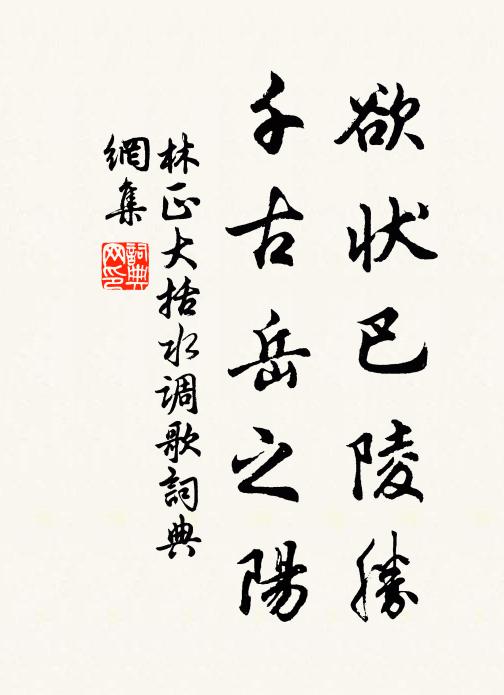 欲状巴陵勝
千古岳之陽
林正大括水调歌詞典
網集
詞典
网印